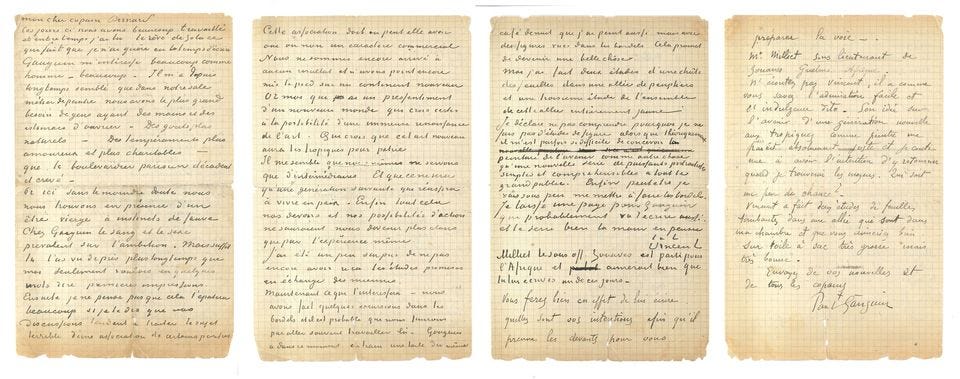 mon cher copain Bernard
ces jours ci nous avons beaucoup travaillé
et entretemps j'ai lu le rêve de Zola ce
qui fait que je n'ai guère eu le temps d'écrire
Gauguin m'intéresse beaucoup comme
homme – beaucoup – Il m'a depuis
longtemps semblé que dans notre sale
métier de peintre nous avons le plus grand
besoin de gens ayant des mains et des
estomacs d'ouvrier – Des goûts plus
naturels – Des tempéraments plus
amoureux et plus charitables
que le boulevardier parisien décadent
et crevé –
Or ici sans le moindre doute nous
nous trouvons en présence d'un
être vierge à instincts de sauvage
Chez Gauguin le sang et le sexe
prévalent sur l'ambition. Mais suffit
tu l'as vu de près plus longtemps que
moi seulement voulais en quelques
mots dire premières impressions.
Ensuite je ne pense pas que cela t'épatera
beaucoup si je te dis que nos
discussions tendent à traiter le sujet
terrible d'une association de certains peintres
Cette association doit ou peut elle avoir
oui ou non un caractère commercial
Nous ne sommes encore arrivé à
aucun résultat et n'avons point encore
mis le pied sur un continent nouveau
Or moi qui ai un pressentiment
d'un nouveau monde qui crois certes
à la possibilité d'une immense renaissance
de l'art. Qui crois que cet art nouveau
aura les tropiques pour patrie
Il me semble que nous mêmes ne servons
que d'intermédiaires. Et que ce n'est
qu'une génération suivante qui réussira
à vivre en paix. Enfin tout cela
nos devoirs et nos possibilités d'action
ne sauraient nous devenir plus claires
que par l'expérience même
J'ai été un peu surpris de ne pas
encore avoir reçu les études promises
en échange des miennes
Maintenant ce qui t'intéressera – nous
avons fait quelques excursions dans les
bordels et il est probable que nous finirons
par aller souvent travailler là. Gauguin
a dans ce moment en train une toile du même
café de nuit que j'ai peint aussi mais avec
des figures vues dans les bordels. Cela promet
de devenir une belle chose.
Moi j'ai fait deux études d'une chute
des feuilles dans une allée de peupliers
et une troisième étude de l'ensemble
de cette allée entièrement jaune
Je déclare ne pas comprendre pourquoi je ne
fais pas d'études de figure alors que théoriquement
il m'est parfois si difficile de concevoir la
peinture de l'avenir comme autre chose
qu'une nouvelle série de puissants portraitistes
simples et compréhensibles à tout le
grand public. Enfin peut être je
vais sous peu me mettre à faire les bordels.
Je laisse une page pour Gauguin
qui probablement va t'écrire aussi
et te serre bien la main en pensée
t. à t.
Vincent
Milliet le sous off. Zouaves est parti pour
l'Afrique et aimerait bien que
tu lui écrives un de ces jours –
Vous ferez bien en effet de lui écrire
quelles sont vos intentions afin qu'il
prenne les devants pour vous
préparer la voie –.
Mr Milliet sous lieutenant de
Zouaves Guelma Afrique
n'écoutez pas Vincent, il a comme
vous savez l'admiration facile
et l'indulgence dito. Son idée sur
l'avenir d'une génération nouvelle
aux tropiques comme peintre me
paraît absolument juste et je continue
à avoir l'intention d'y retourner
quand je trouverai les moyens. Qui sait
un peu de chance?
Vincent a fait deux études de feuilles
tombantes dans une allée qui sont dans
ma chambre et que vous aimeriez bien
sur toile à sac très grosse mais
très bonne.
Envoyez de vos nouvelles et
de tous les copains
Paul Gauguin